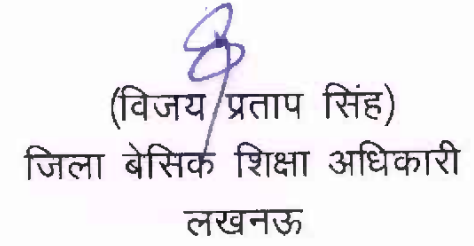 (विजय प्रताप सिंह)
जिला बेसिक शिक्षा अधिकारी
लखनऊ